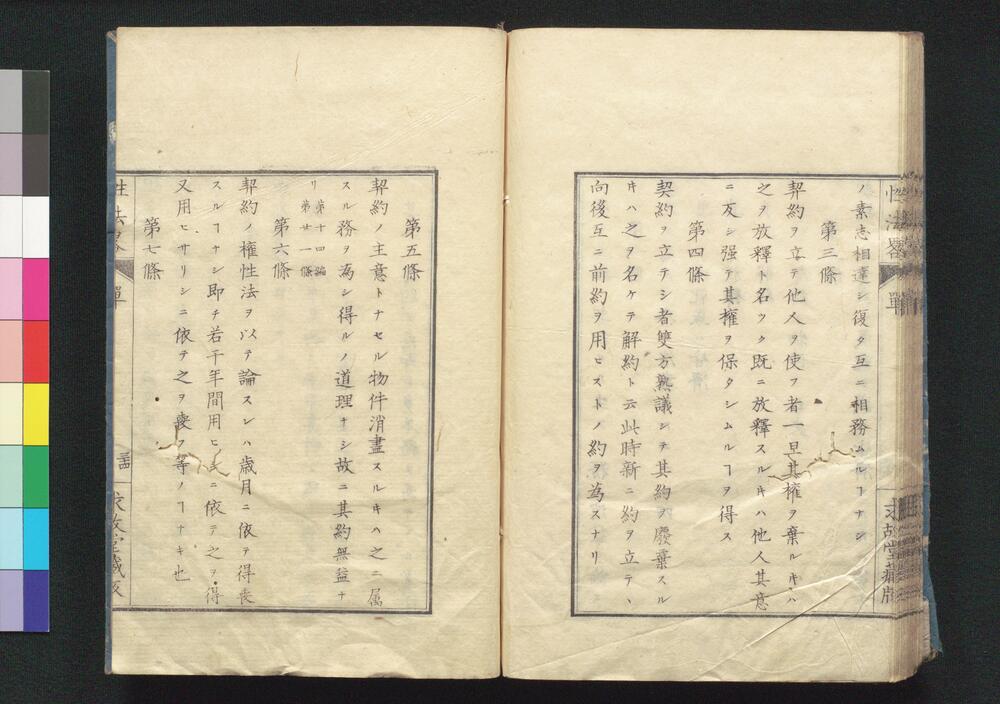 ノ素志相達シ復タ互ニ相務ムルヿナシ
第三條
契約ヲ立テ他人ヲ使フ者一旦其權ヲ棄ルキハ
之ヲ放釋ト名ツク既ニ放釋スルキハ他人其意
ニ反シ强テ其權ヲ保タシムルヿヲ得ス
第四條
契約ヲ立テシ者雙方熟議シテ其約ヲ廢棄スル
キハ之ヲ名ケテ解約ト云此時新ニ約ヲ立テヽ
向後互ニ前約ヲ用ヒストノ約ヲ為スナリ
性法畧
單
求故堂藏版
第五條
契約ノ主意トナセル物件消盡スルキハ之ニ属
スル務ヲ為シ得ルノ道理ナシ故ニ其約無益ナ
リ第十四編
第廿一條
第六條
契約ノ權性法ヲ以テ論スレハ歳月ニ依テ得喪
スルヿナシ即チ若干年間用ヒシニ依テ之ヲ得
又用ヒサリシニ依テ之ヲ喪フ等ノヿナキ也
第七條
性法畧
單
求故堂藏版